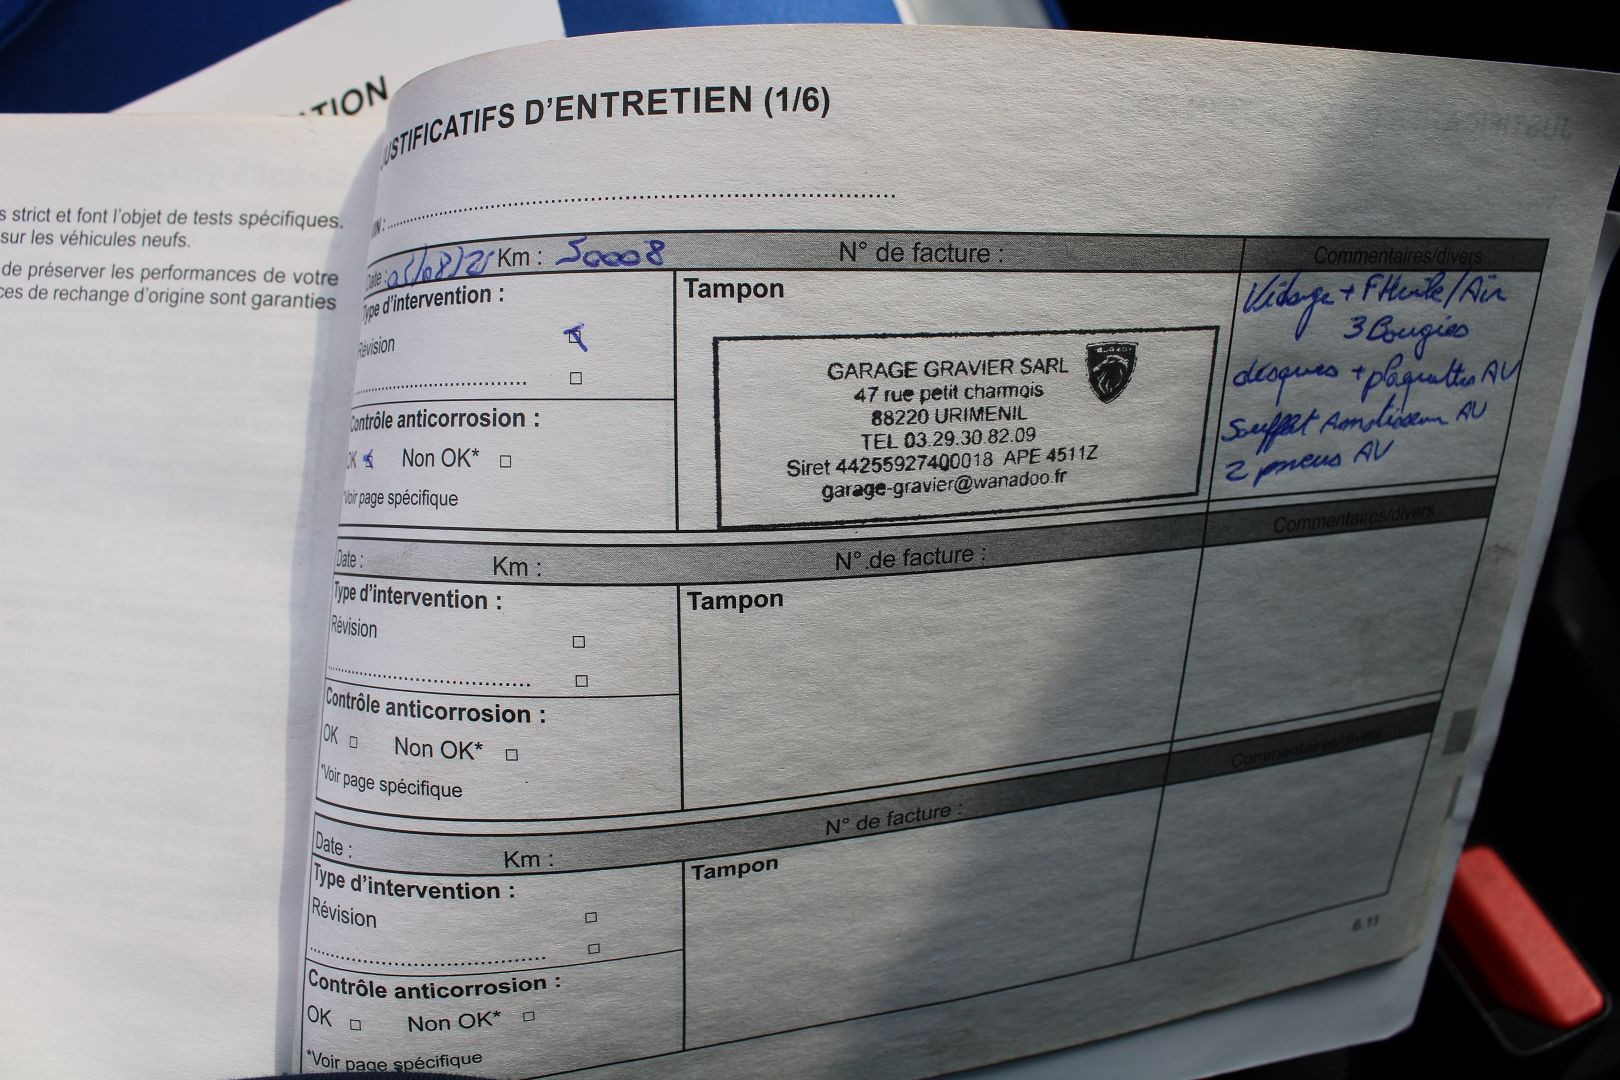 TION
s strict et font l'objet de tests spécifiques.
sur les véhicules neufs.
de préserver les performances de votre
ces de rechange d'origine sont garanties
JUSTIFICATIFS D'ENTRETIEN (1/6)
VIN :
Date : 05/08/25 Km : 50008 N° de facture : Commentaires/divers
Type d'intervention :
Révision
Contrôle anticorrosion :
OK Non OK*
*Voir page spécifique
Tampon
GARAGE GRAVIER SARL
47 rue petit charmois
88220 URIMENIL
TEL 03.29.30.82.09
Siret 44255927400018 APE 4511Z
garage-gravier@wanadoo.fr
Vidange + F Huile/Air
3 Bougies
disques + plaquettes AV
Soufflet Amortisseur AV
2 pneus AV
Date : Km : N° de facture : Commentaires/divers
Type d'intervention :
Révision
Contrôle anticorrosion :
OK Non OK*
*Voir page spécifique
Tampon
Date : Km : N° de facture : Commentaires/divers
Type d'intervention :
Révision
Contrôle anticorrosion :
OK Non OK*
*Voir page spécifique
Tampon
6.11